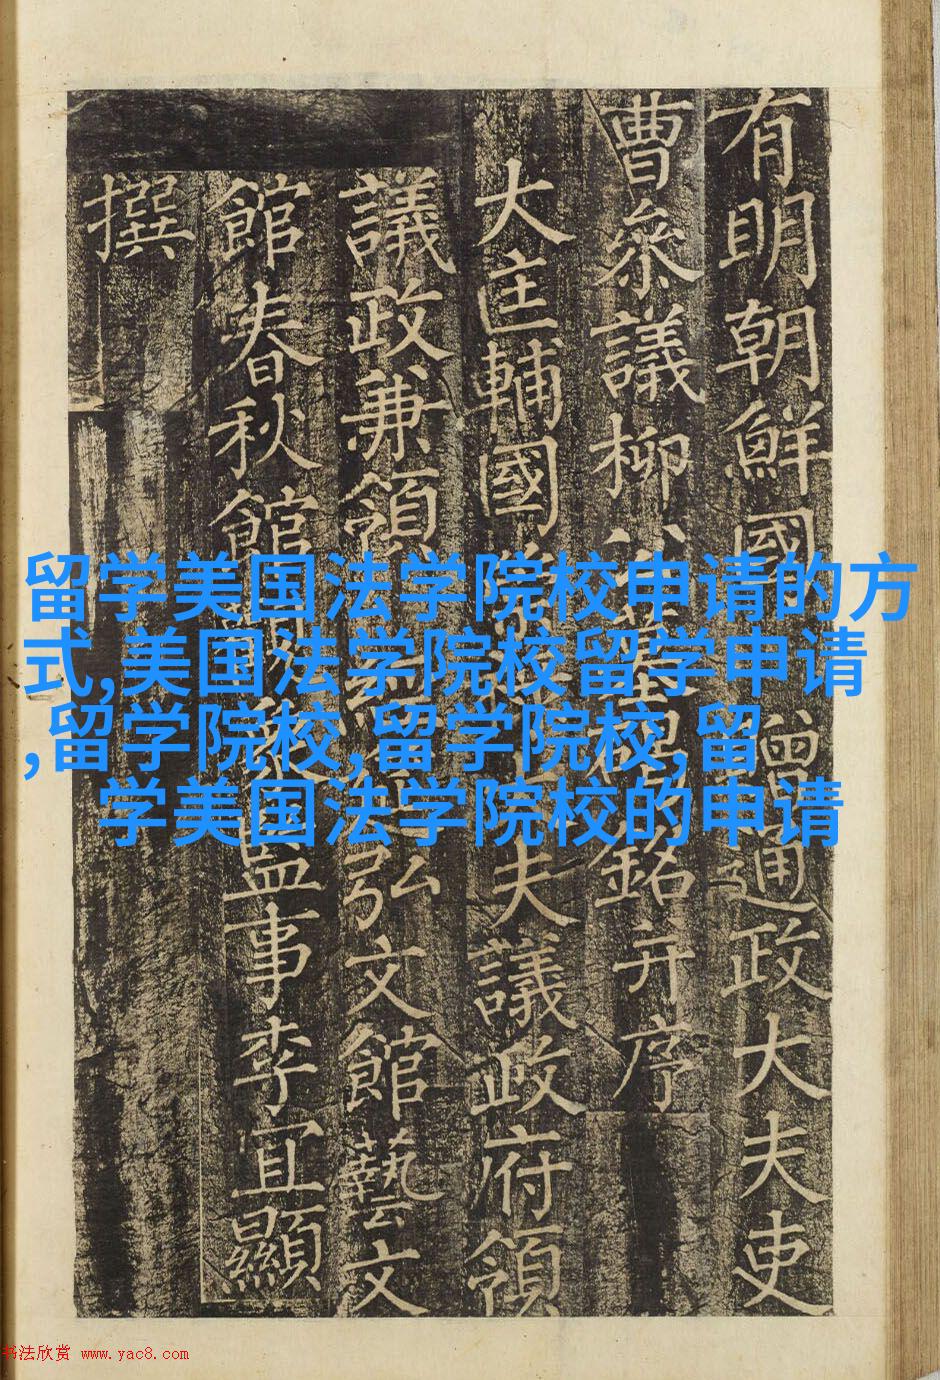 有明朝鮮國 贈通政大夫吏
曹叅議柳公墓碣銘并序
大匡輔國崇 夫議政府領
議政兼領 弘文館藝文
館春秋館 監事李宜顯
撰
留学美国法学院校申请的方
式,美国法学院校留学申请
,留学院校,留学院校,留
学美国法学院校的申请
书法欣赏 www.yac8.com